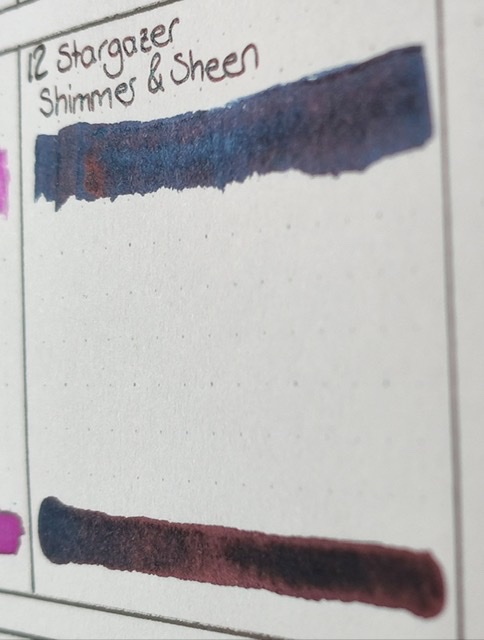 12 Stargazer
Shimmer & Sheen